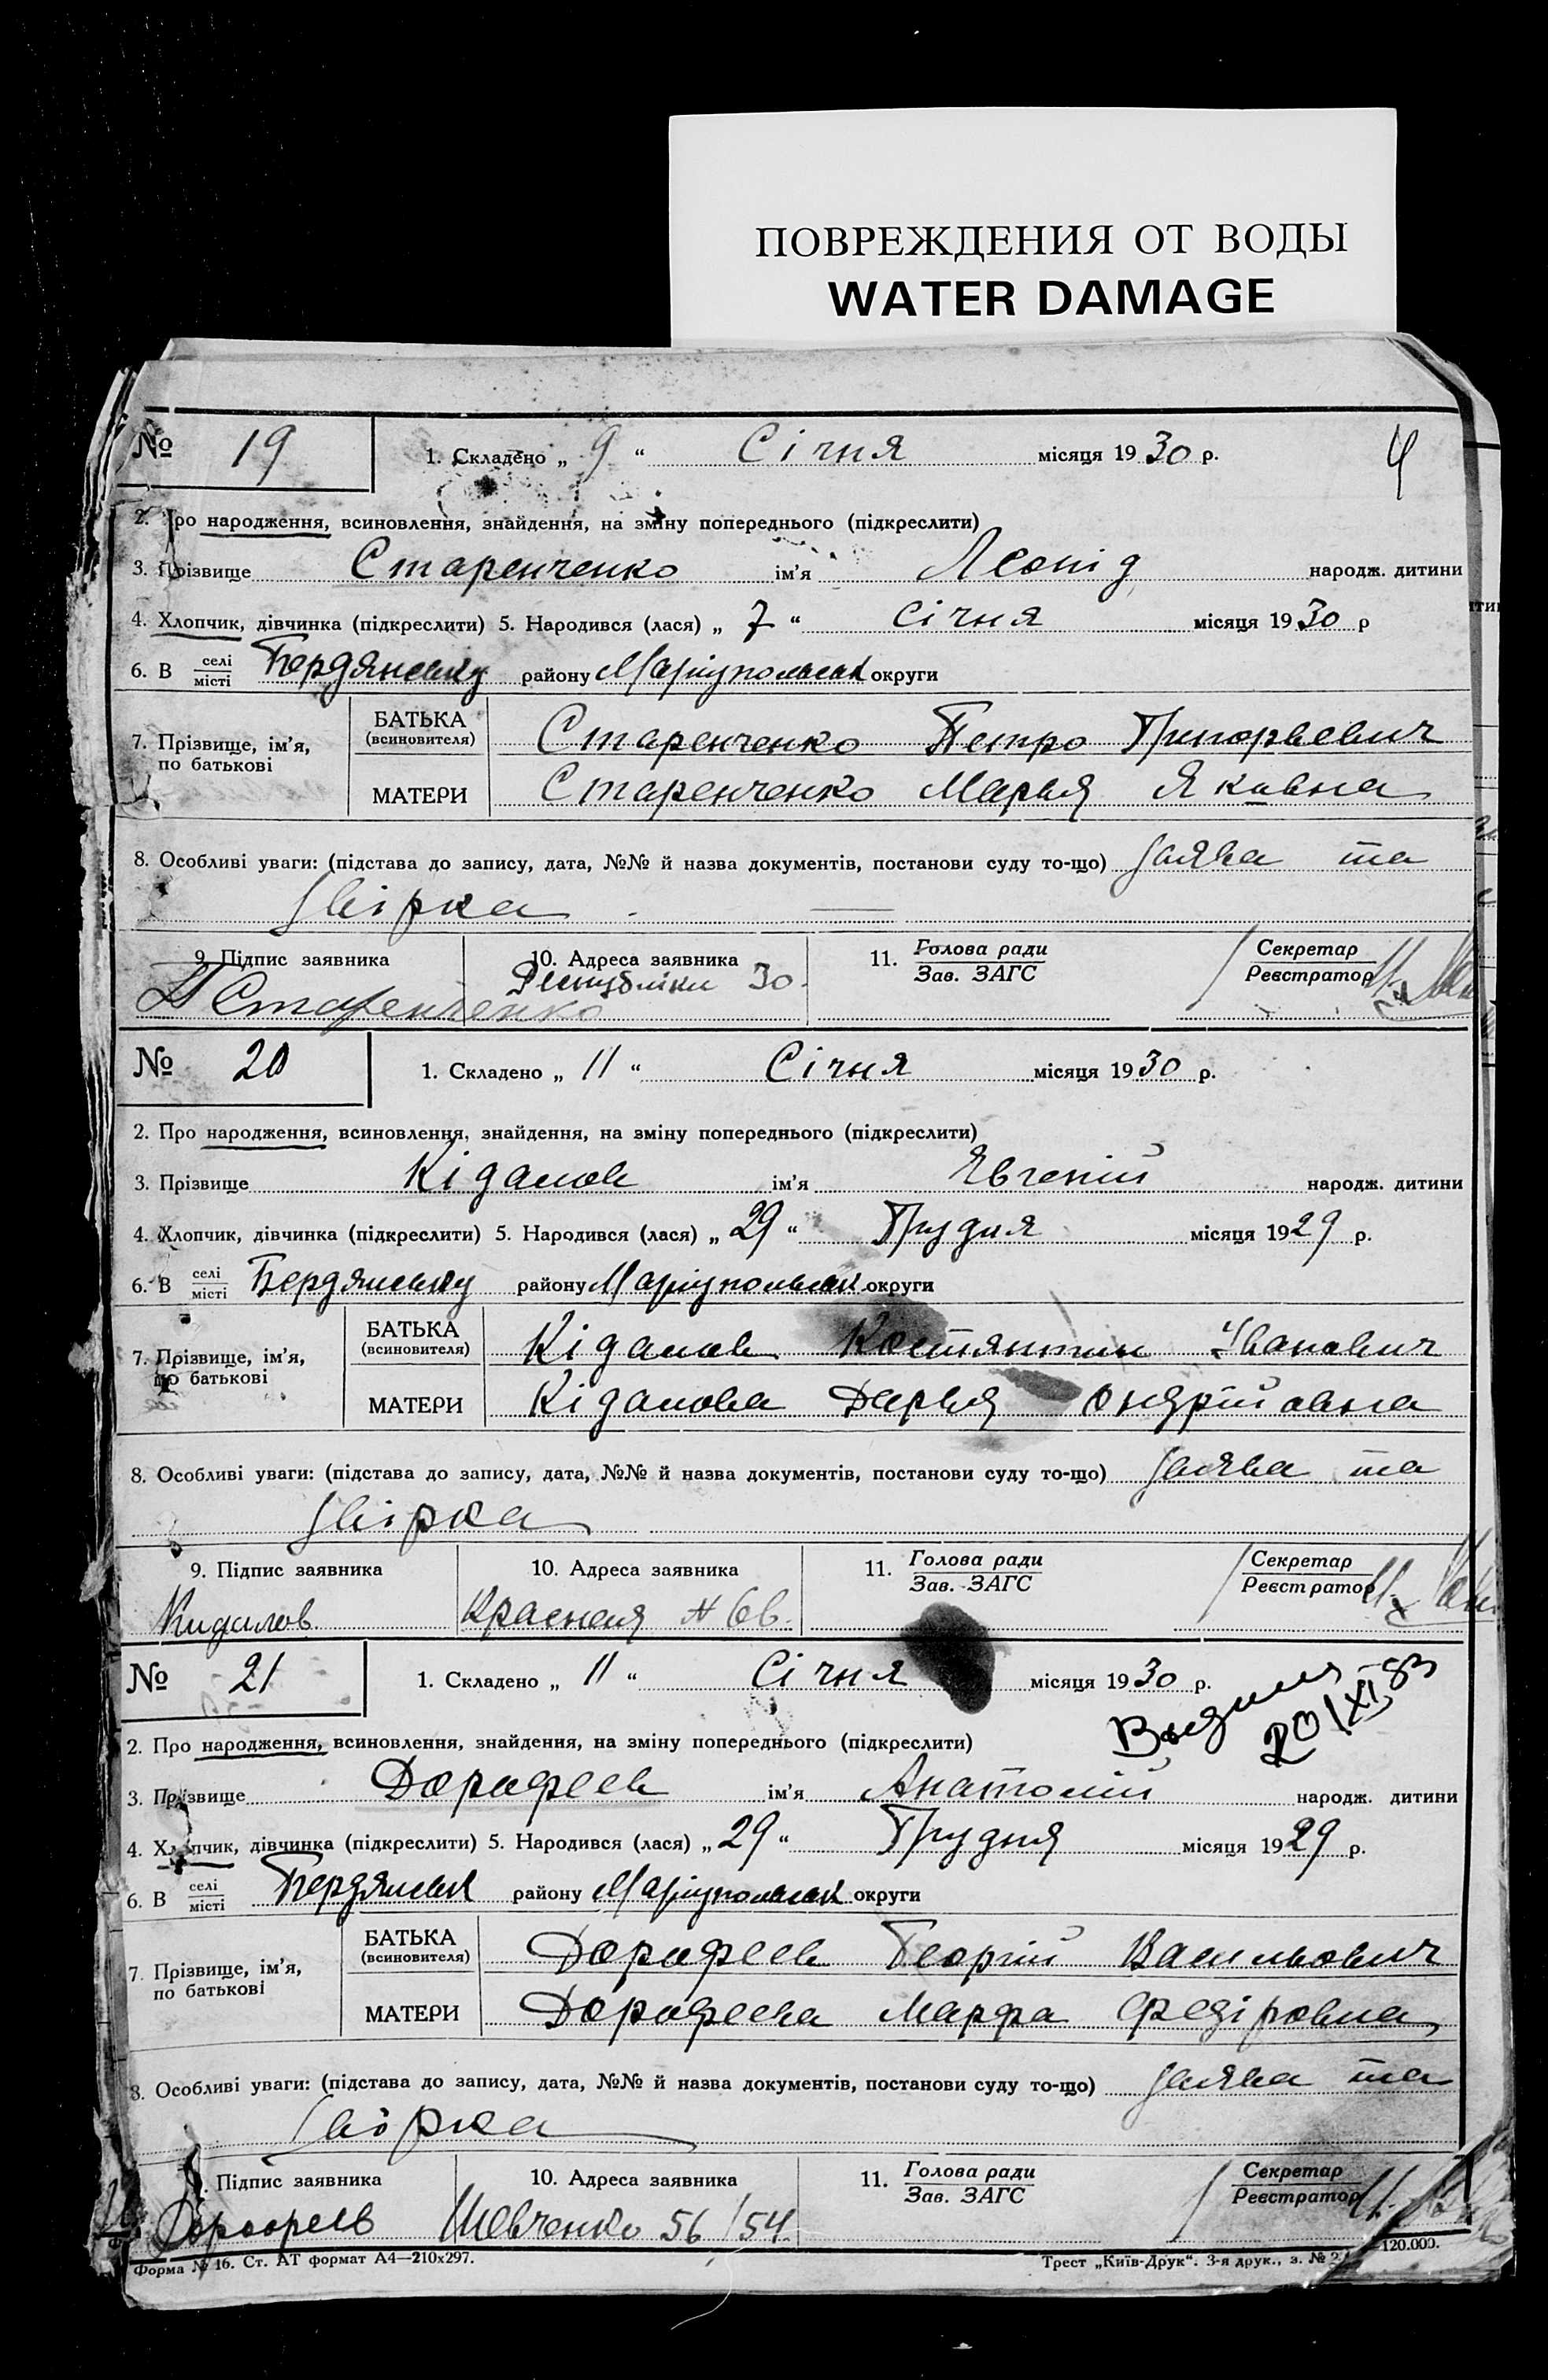 ПОВРЕЖДЕНИЯ ОТ ВОДЫ
WATER DAMAGE
№ 19 1. Складено „ 9 “ Січня місяця 1930 р. 4
2. Про народження, всиновлення, знайдення, на зміну попереднього (підкреслити)
3. Прізвище Старенченко ім'я Леонід народж. дитини
4. Хлопчик, дівчинка (підкреслити) 5. Народився (лася) „ 7 “ січня місяця 1930 р
6. В селі місті Бердянську району Маріупольськ округи
7. Прізвище, ім'я, по батькові
БАТЬКА (всиновителя) Старенченко Петро Григорьевич
МАТЕРИ Старенченко Марья Яківна
8. Особливі уваги: (підстава до запису, дата, №№ й назва документів, постанови суду то-що) Заява та
Звірка
9. Підпис заявника 10. Адреса заявника 11. Голова ради Зав. ЗАГС Секретар Реєстратор
Старенченко Республіки 30.
№ 20 1. Складено „ 11 “ Січня місяця 1930 р.
2. Про народження, всиновлення, знайдення, на зміну попереднього (підкреслити)
3. Прізвище Кідалов ім'я Євгеній народж. дитини
4. Хлопчик, дівчинка (підкреслити) 5. Народився (лася) „ 29 “ Грудня місяця 1929 р.
6. В селі місті Бердянську району Маріупольськ округи
7. Прізвище, ім'я, по батькові
БАТЬКА (всиновителя) Кідалов Костянтин Іванович
МАТЕРИ Кідалова Дарья Ондрійовна
8. Особливі уваги: (підстава до запису, дата, №№ й назва документів, постанови суду то-що) Заява та
Звірка
9. Підпис заявника 10. Адреса заявника 11. Голова ради Зав. ЗАГС Секретар Реєстратор
Кидалов. Красная №
№ 21 1. Складено „ 11 “ Січня місяця 1930 р.
20/XI-83
2. Про народження, всиновлення, знайдення, на зміну попереднього (підкреслити)
3. Прізвище Дорофеев ім'я Анатолій народж. дитини
4. Хлопчик, дівчинка (підкреслити) 5. Народився (лася) „ 29 “ Грудня місяця 1929 р.
6. В селі місті Бердянськ району Маріупольськ округи
7. Прізвище, ім'я, по батькові
БАТЬКА (всиновителя) Дорофеев Георгій Васильович
МАТЕРИ Дорофеева Марфа Федіровна
8. Особливі уваги: (підстава до запису, дата, №№ й назва документів, постанови суду то-що) Заява та
Звірка
Підпис заявника 10. Адреса заявника 11. Голова ради Зав. ЗАГС Секретар Реєстратор
Дорофеев Шевченко 56/54
Форма № 16. Ст. АТ формат А4—210х297. Трест „Київ-Друк“. 3-я друк., з. № 120.000.